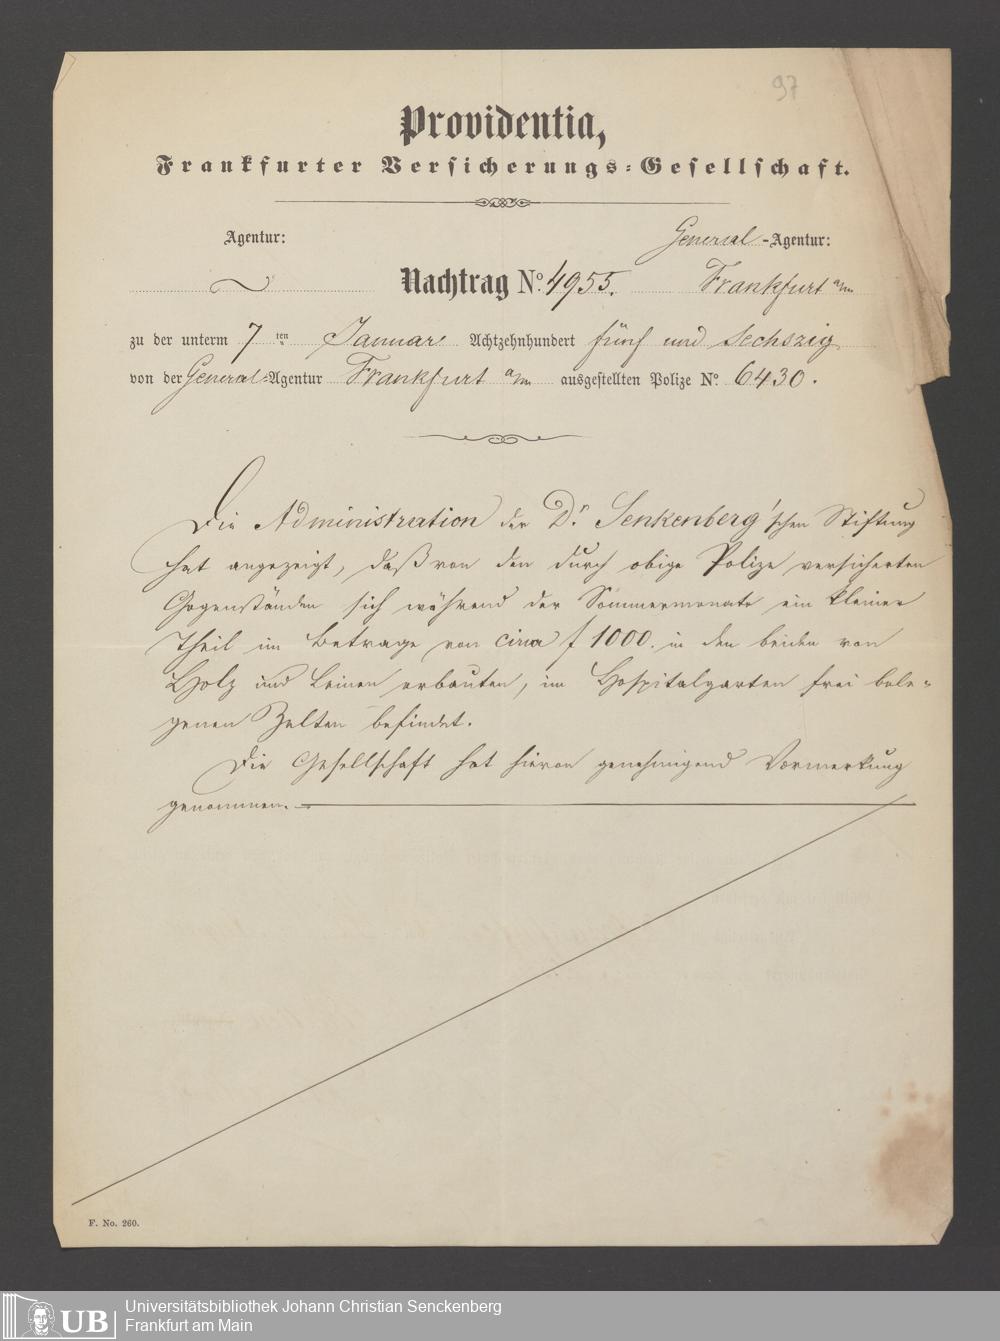 97
Providentia,
Frankfurter Versicherungs-Gesellschaft.
Agentur:
General-Agentur:
Nachtrag No. 4955.
Frankfurt a/m
zu der unterm 7ten Januar Achtzehnhundert fünf und sechszig
von der General-Agentur Frankfurt a/m ausgestellten Polize No. 6430.
Die Administration der Dr. Senkenberg'schen Stiftung
hat angezeigt, daß von den durch obige Polize versicherten
Gegenständen sich während der Sommermonate ein kleiner
Theil im Betrage von circa f 1000. in den beiden von
Holz und Leinen erbauten, im Hospitalgarten frei bele-
genen Zelten befindet.
Die Gesellschaft hat hievon genehmigend Vormerkung
genommen.
F. No. 260.
UB
Universitätsbibliothek Johann Christian Senckenberg
Frankfurt am Main